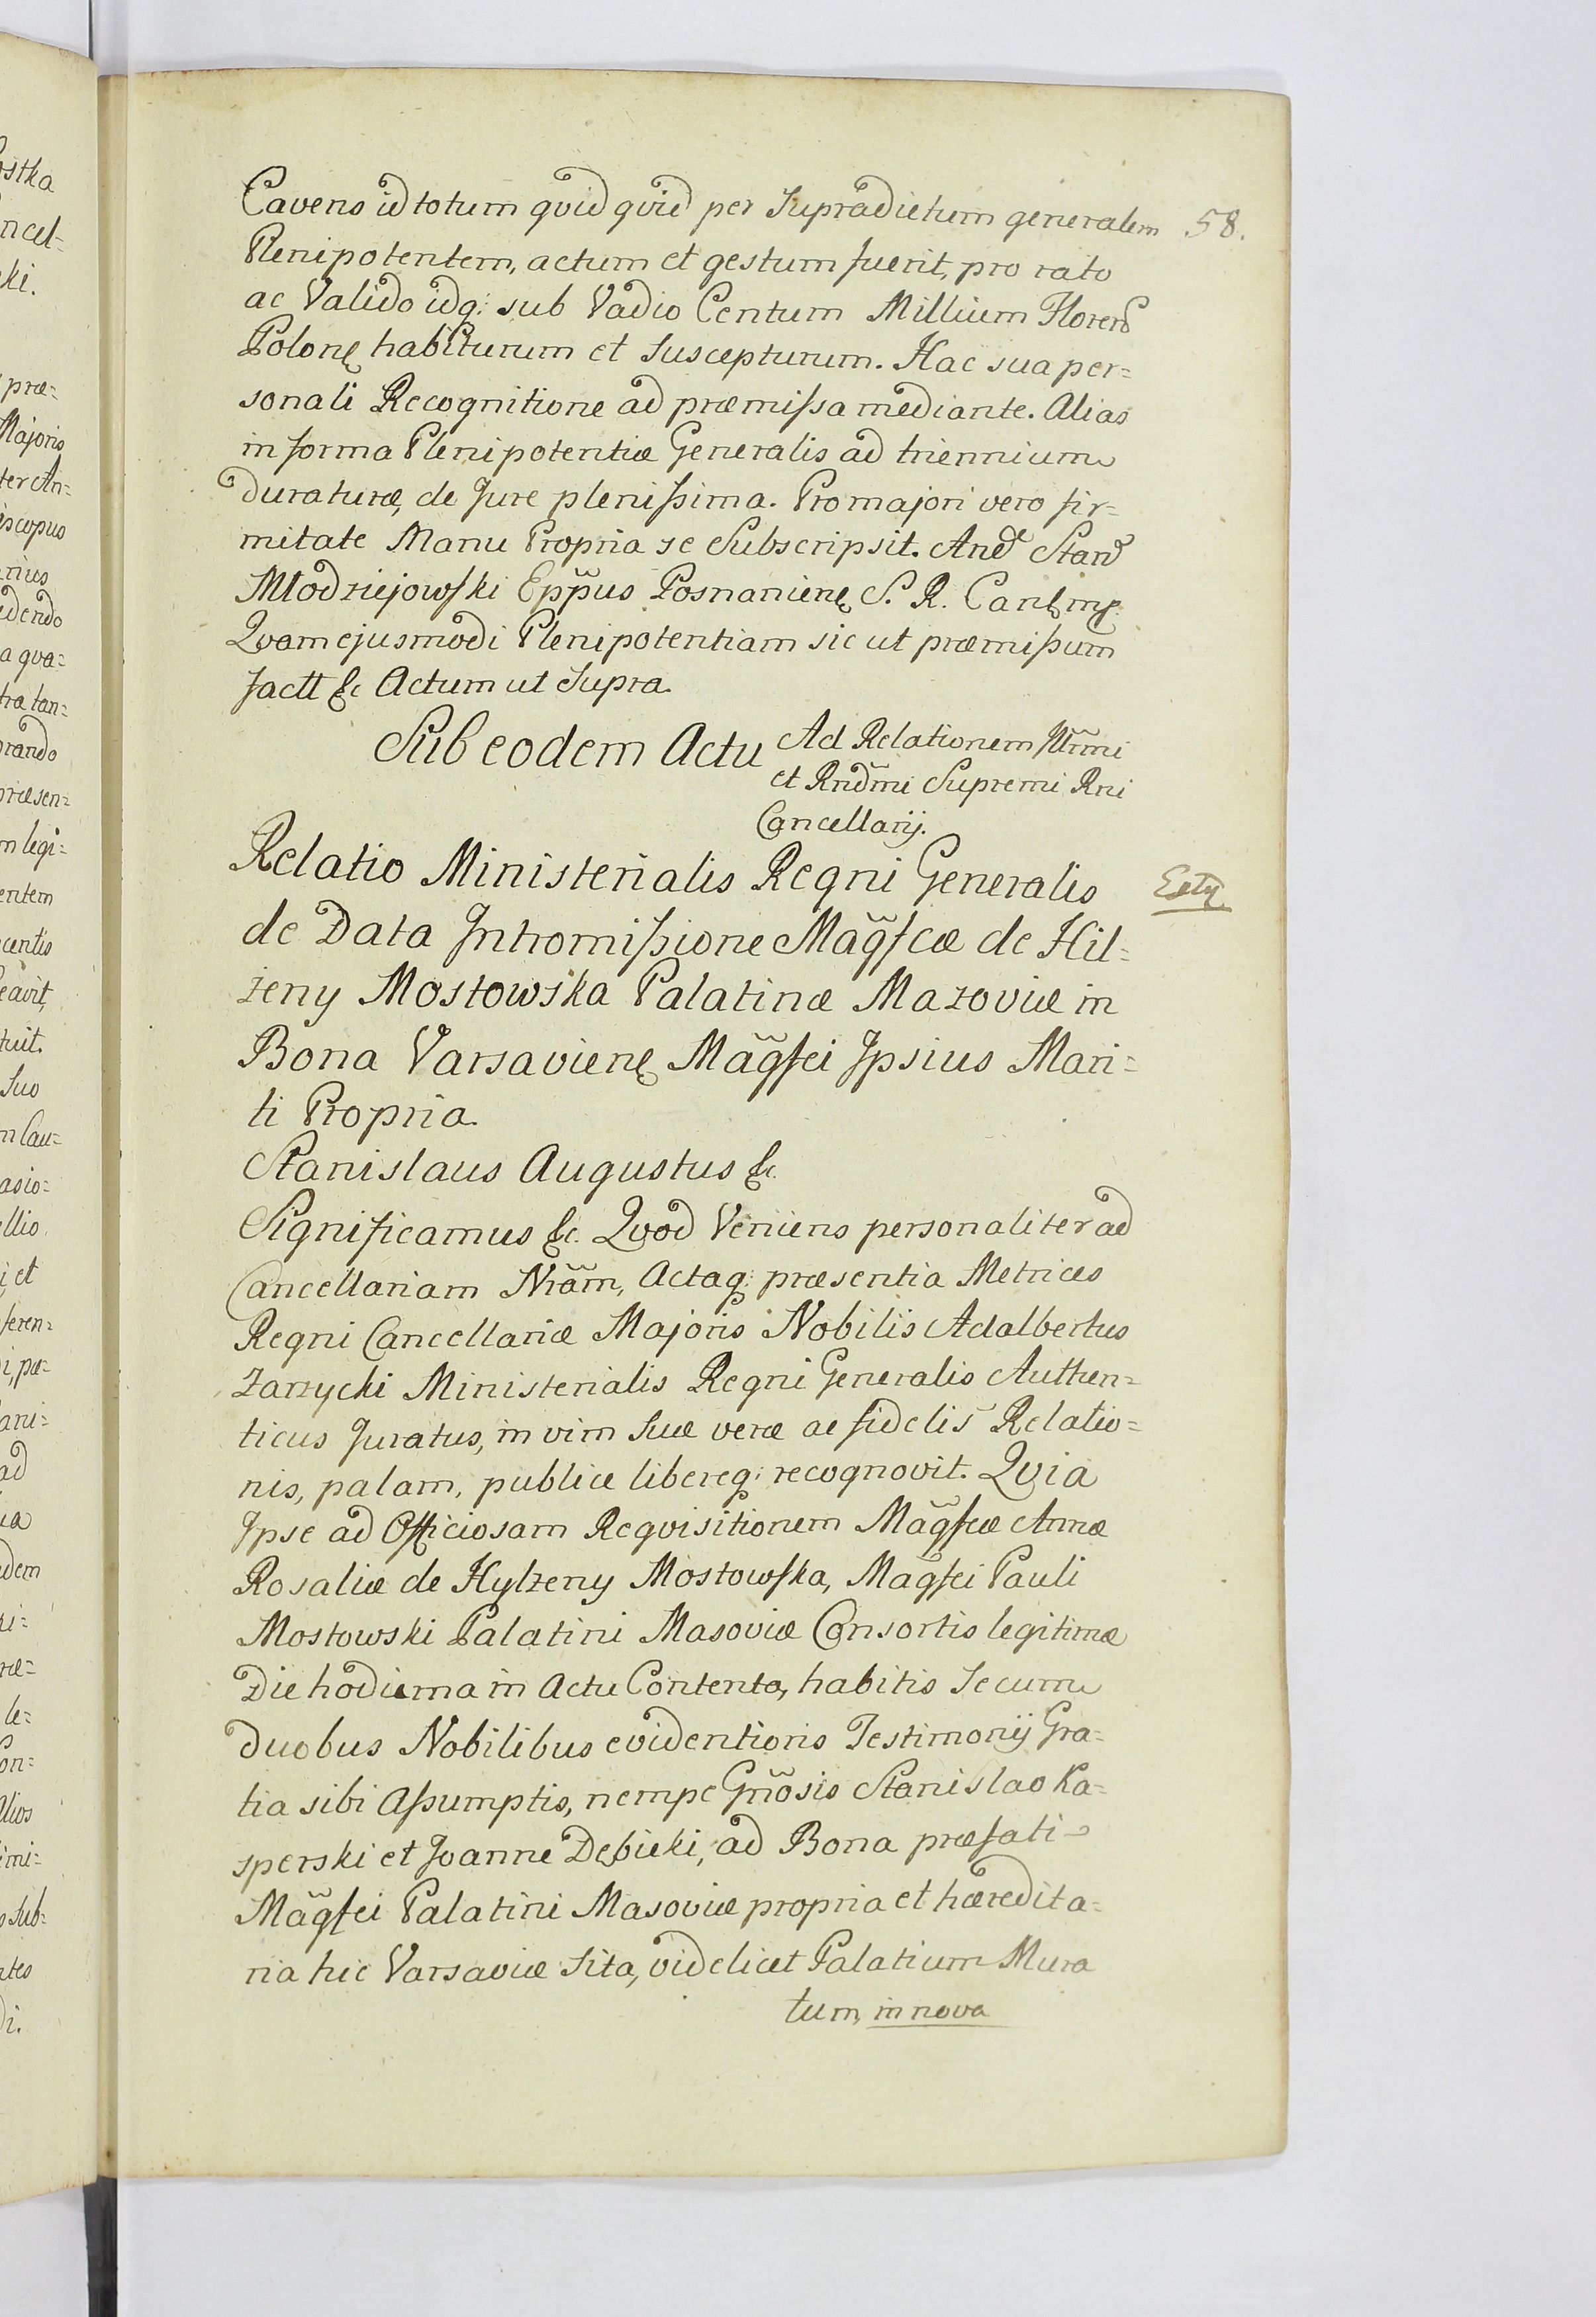 Cavens id totum qvid qvid per supradictum generalem 58.
Plenipotentem, actum et gestum fuerit, pro rato
ac Valido idq: sub Vadio Centum Millium Floren
Polonę habiturum et suscepturum. Hac sua per=
sonali Recognitione ad præmissa mediante. Alias
in forma Plenipotentiæ Generalis ad triennium
duraturæ, de Jure plenissima. Pro majori vero fir=
mitate Manu Propria se Subscripsit. And Stan
Młodziejowski Epp̃us Posnanienę S. R. Canc mp.
Qvam ejusmodi Plenipotentiam sic ut præmissum
factt &c Actum ut Supra.
Sub eodem Actu Ad Relationem Illr̃mi
et Rndm̃i Supremi Rni
Cancellarij.
Relatio Ministerialis Regni Generalis
de Data Intromissione Mag̃fcæ de Hil=
zeny Mostowska Palatinæ Mazoviæ in
Bona Varsavienę Mag̃fci Ipsius Mari=
ti Propria.
Stanislaus Augustus &c.
Significamus &c. Qvod Veniens personaliter ad
Cancellariam Nrãm, Actaq: præsentia Metrices
Regni Cancellariæ Majoris Nobilis Adalbertus
Zarzycki Ministerialis Regni Generalis Authen=
ticus Juratus, in vim suæ veræ ac fidelis Relatio=
nis, palam, publice libereq: recognovit. Qvia
Ipse ad Officiosam Reqvisitionem Mag̃fcæ Annæ
Rosaliæ de Hylzeny Mostowska, Mag̃fci Pauli
Mostowski Palatini Masoviæ Consortis legitimæ
Die hodierna in Actu Contenta, habitis secum
duobus Nobilibus evidentioris Testimonij Gra=
tia sibi Assumptis, nempe Gnõsis Stanislao Ka=
sperski et Joanne Dębicki, ad Bona præfati
Mag̃fci Palatini Masoviæ propria et hæredita=
ria hic Varsaviæ sita, videlicet Palatium Mura
tum, in nova